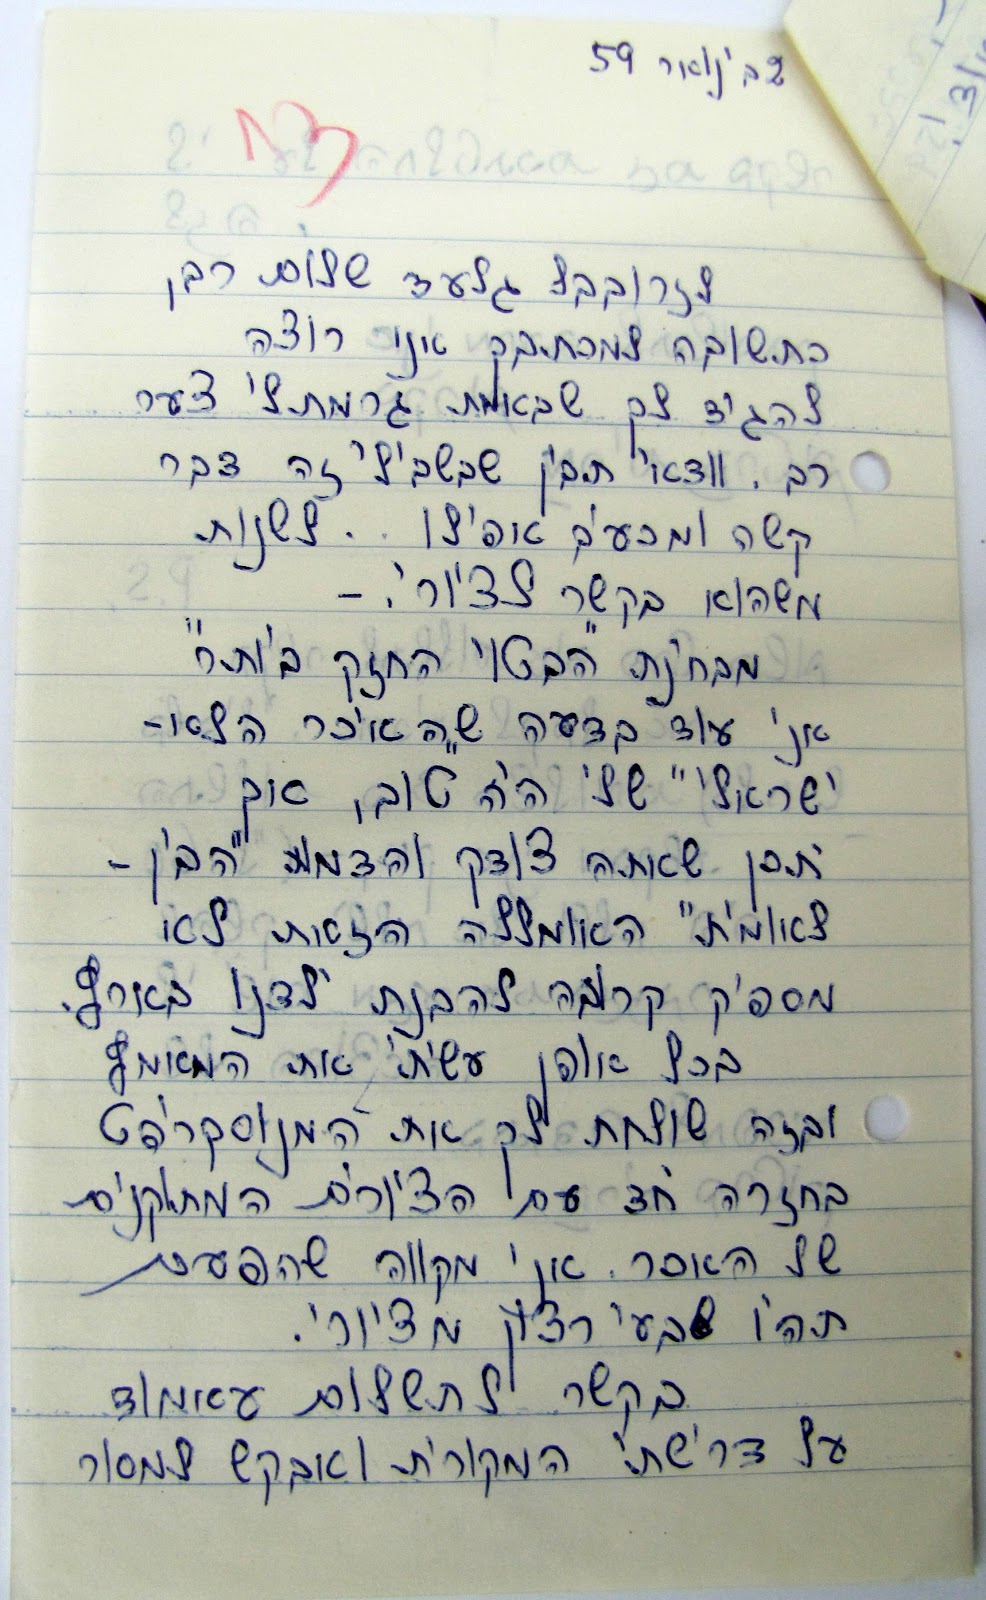 2 בינואר 59
לזרובבל גלעד שלום רב,
כתשובה למכתבך אני רוצה
להגיד לך שבאמת גרמת לי צער
רב. וודאי תבין שבשבילי זה דבר
קשה ומכעיב אפילו .. לשנות
משהוא בקשר לציורי. –
מבחינת "הבטוי החזק ביותר"
אני עוד בדעה ש"האיכר הלאו-
ישראלי" שלי היה טוב, אוך
יתכן שאתה צודק והדמות "הבין –
לאומית" האומללה הזאות לא
מספיק קרובה להבנת ילדנו בארץ.
בכל אופן עשיתי את המאמץ
ובזה שולחת לך את המנוסקריפט
בחזרה יחד עם הציורים המתוקנים
של האכר. אני מקווה שהפעם
תהיו שבעי רצון מציורי.
בקשר לתשלום עאמוד
על דרישתי המקורית ואבקש למסור